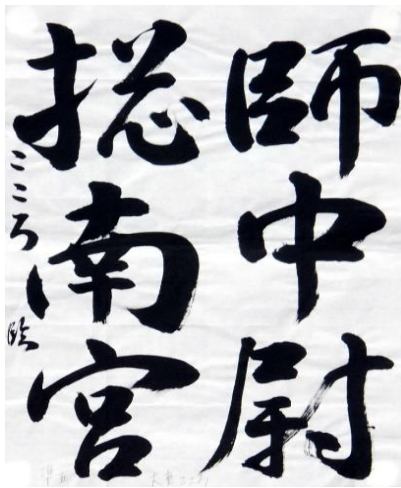 師中尉
捴南宮
こころ臨